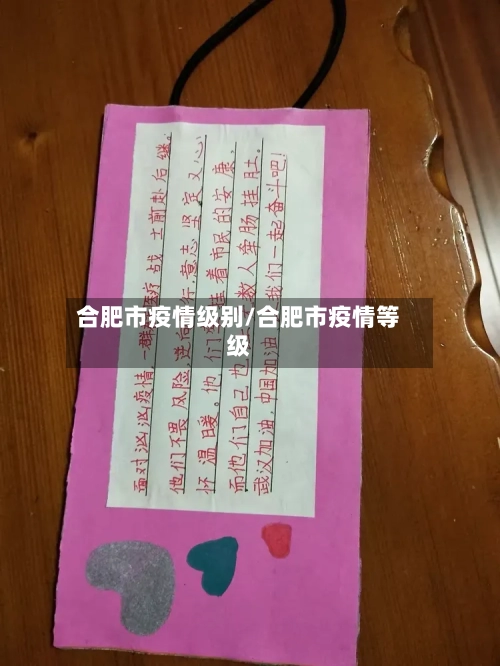 面对汹汹疫情,一群医疗战士前赴后继。
他们不畏风险,逆向行,意志坚定又心
怀温暖。他们着市民的安康,
而他们自己也教人牵肠挂肚。
武汉加油,中国加油我们一起奋斗吧!
合肥市疫情级别/合肥市疫情等
级